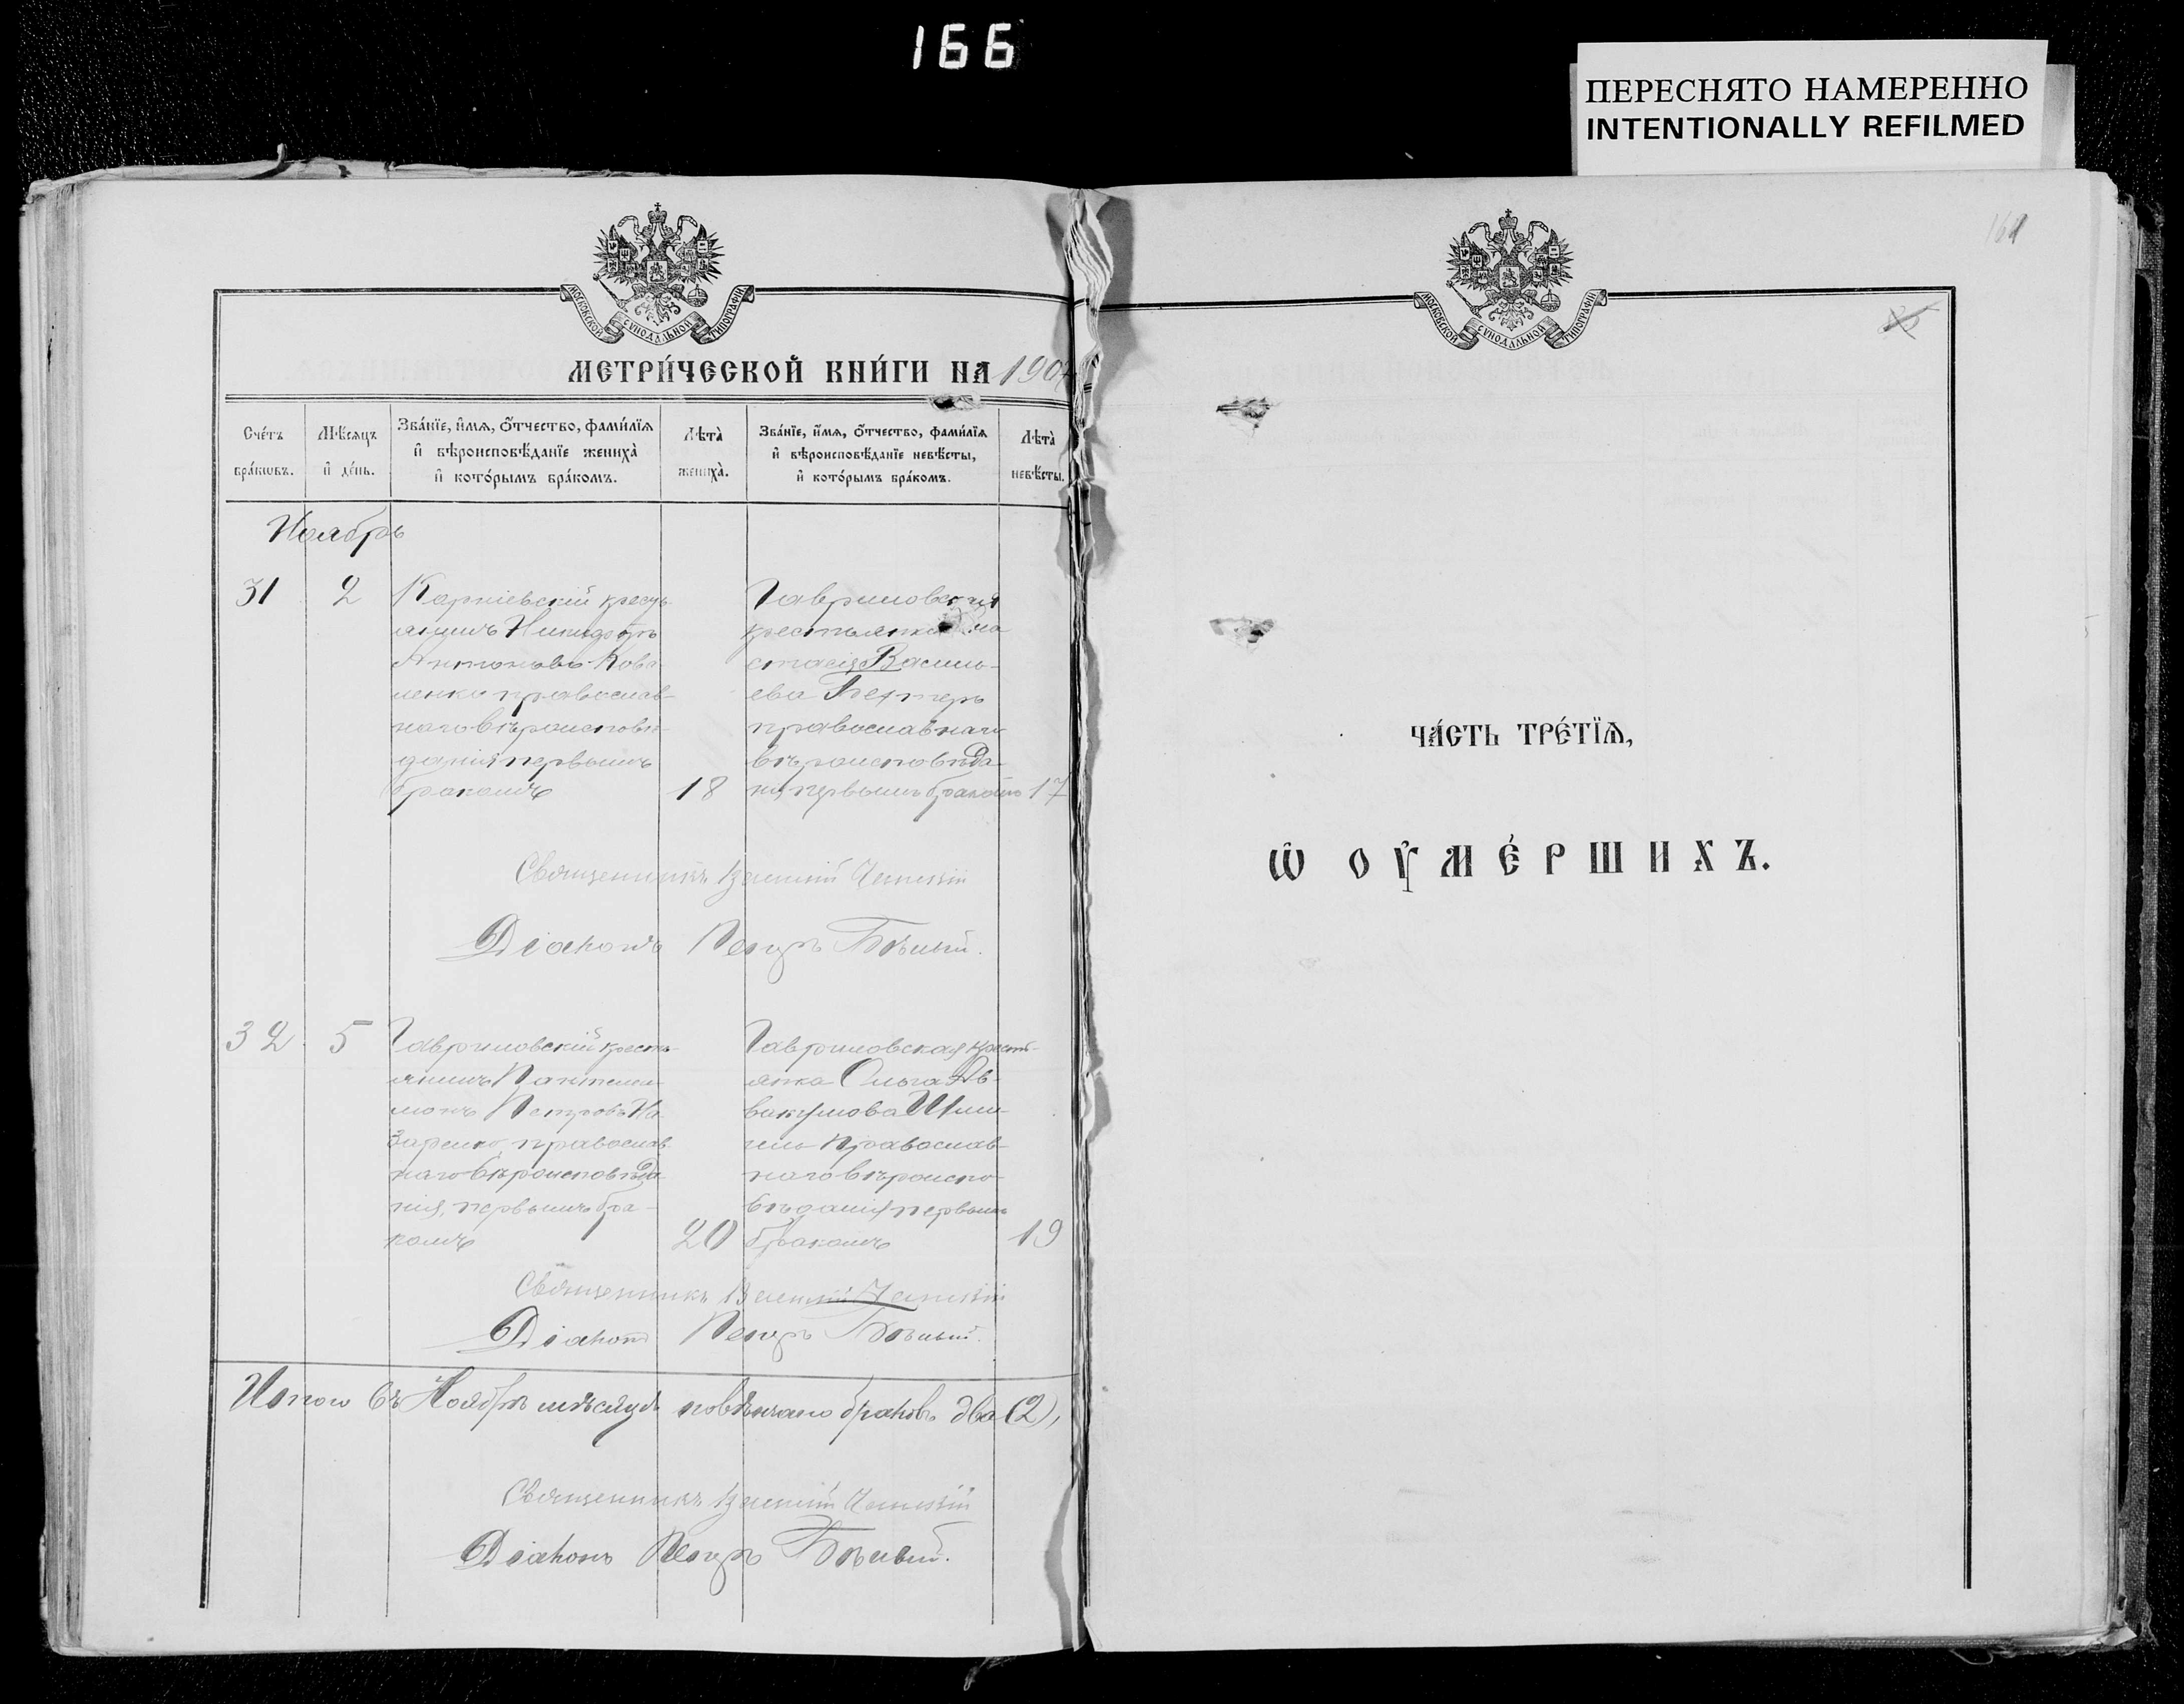 166
ПЕРЕСНЯТО НАМЕРЕННО
INTENTIONALLY REFILMED
МОСКОВСКОЙ СѴНОДАЛЬНОЙ ТИПОГРАФІИ
МЕТРИ́ЧЕСКОЙ КНИ́ГИ НА 190
Сче́тъ бра́ковъ.
Мѣ́сяцъ и де́нь.
Зва́нїе, и́мя, ѻ҆́тчество, фами́лїя
и҆ вѣроисповѣ́данїе жениха̀
и҆ кото́рымъ бра́комъ.
Лѣта̀ жениха̀.
Зва́нїе, и҆́мя, ѻ҆́тчество, фами́лїя
и҆ вѣроисповѣ́данїе невѣ́сты,
и҆ кото́рымъ бра́комъ.
Лѣта̀ невѣ́сты.
Ноябрь
31
2
Карпіевскій крестья
нинъ Никифоръ
Антоновъ Кова
ленко православ-
наго вѣроисповѣ-
данія первымъ
бракомъ
18
Гавриловская
крестьянка На
стасія Василь-
ева
православнаго
вѣроисповѣда-
нія первымъ бракомъ
17
Священникъ Василій
Діаконъ Петръ Бѣлый.
32
5
Гавриловскій кресть-
янинъ Пантелеи-
монъ Петровъ На-
заренко, православ
наго вѣроисповѣда-
нія, первымъ бра-
комъ
20
Гавриловская крест-
янка Ольга Ав-
вакумова
православ-
наго вѣроиспо-
вѣданія первымъ
бракомъ
19
Священникъ Василій
Діаконъ Петръ Бѣлый.
Итого въ Ноябрѣ мѣсяцѣ повѣнчано браковъ два (2),
Священникъ Василій
Діаконъ Петръ Бѣлый.
161
МОСКОВСКОЙ СѴНОДАЛЬНОЙ ТИПОГРАФІИ
85
ЧА́СТЬ ТРЕ́ТЇѦ,
Ѡ҆ ОУ҆МЕ́РШИХЪ.